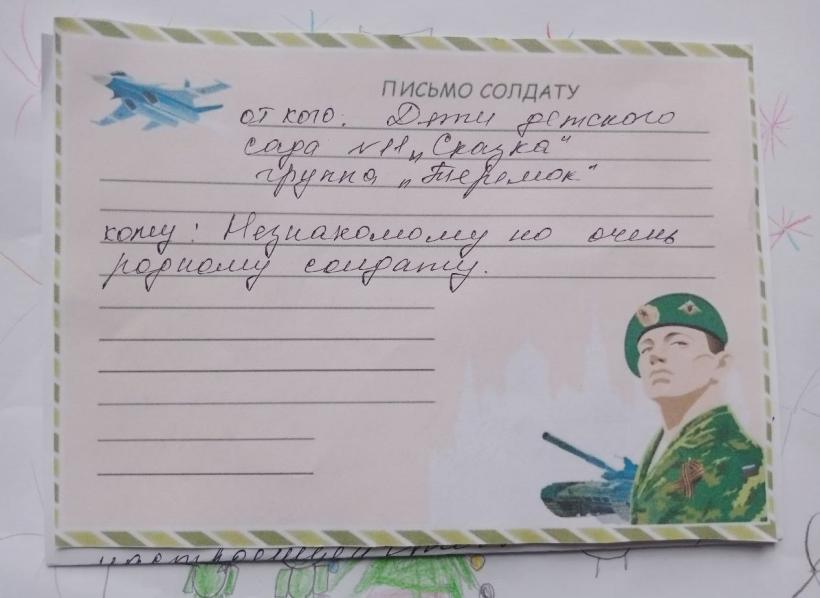 ПИСЬМО СОЛДАТУ
от кого: Дети детского
сада №11 „Сказка"
группа „Теремок"
кому: Незнакомому но очень
родному солдату.